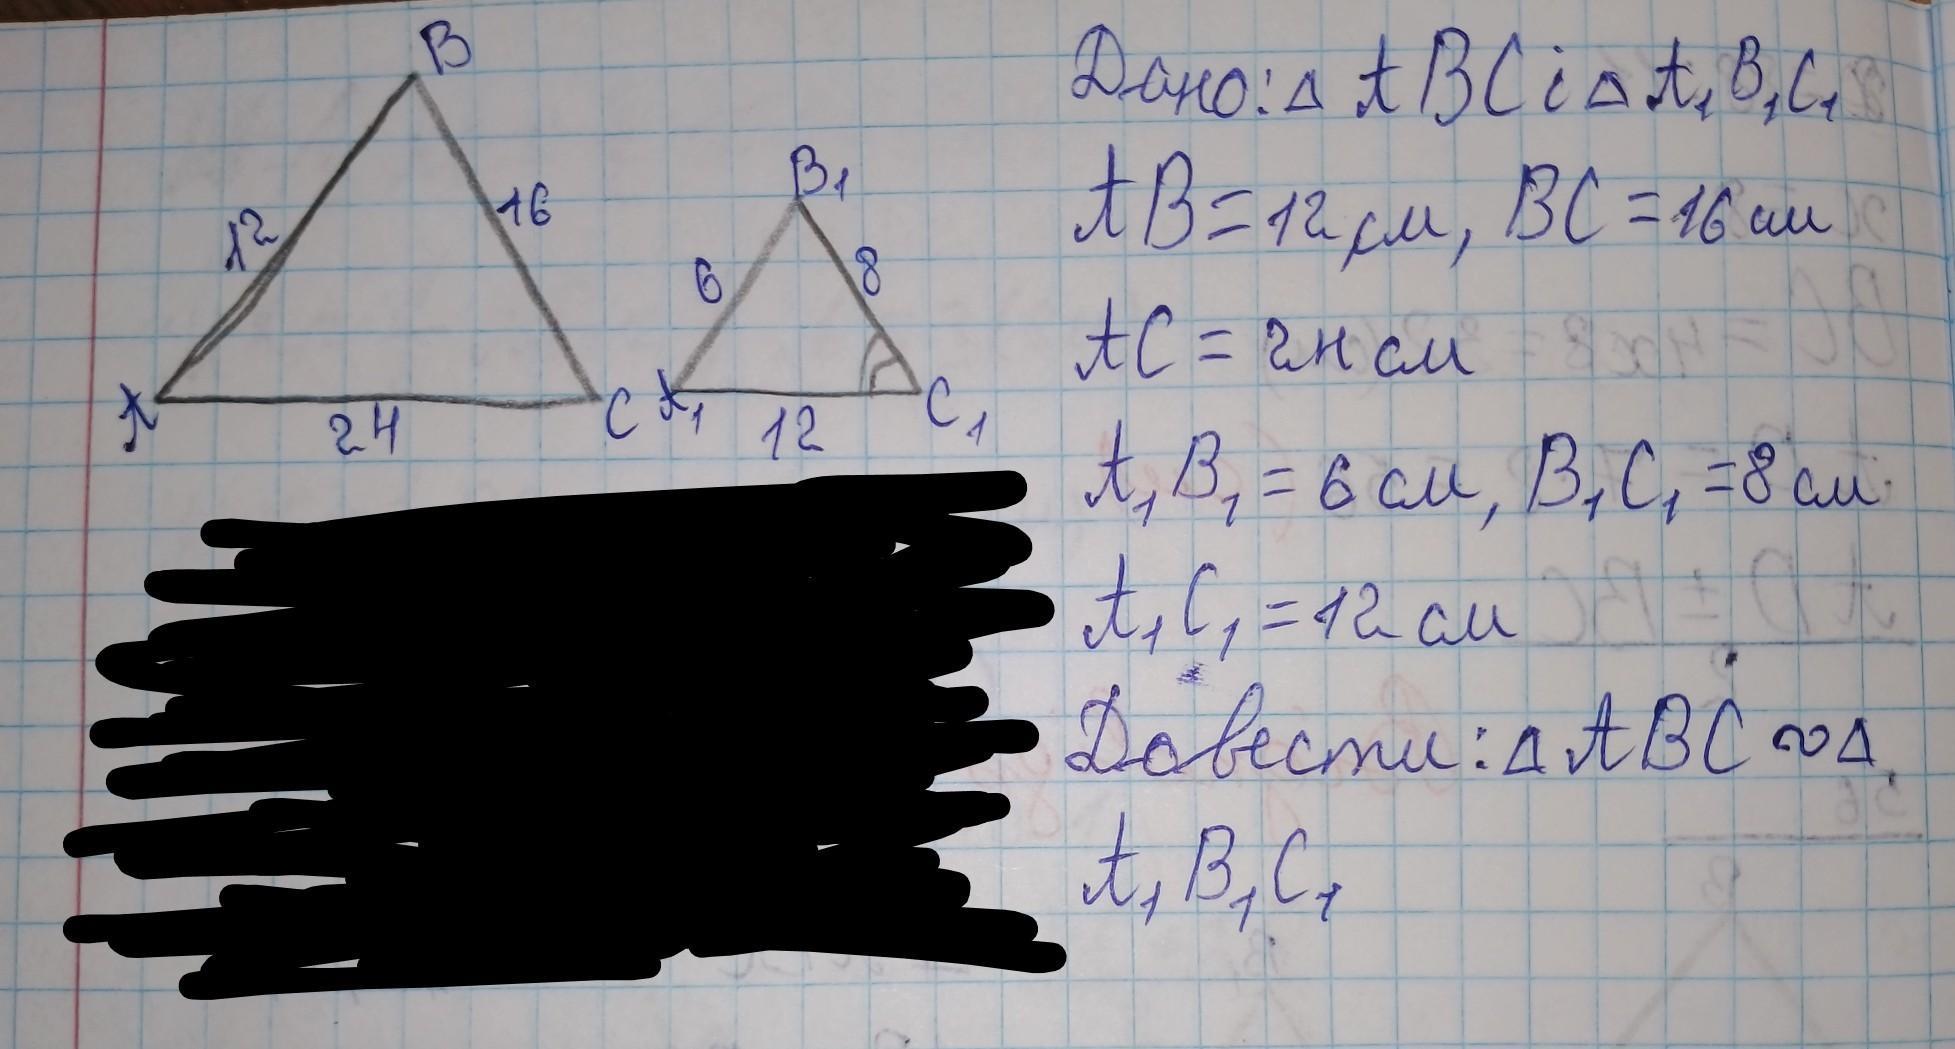 B
12
16
A
24
C
B₁
6
8
A₁
12
C₁
Дано: △ ABC і △ A₁B₁C₁
AB = 12 см, BC = 16 см
AC = 24 см
A₁B₁ = 6 см, B₁C₁ = 8 см
A₁C₁ = 12 см
Довести: △ ABC ∾ △
A₁B₁C₁